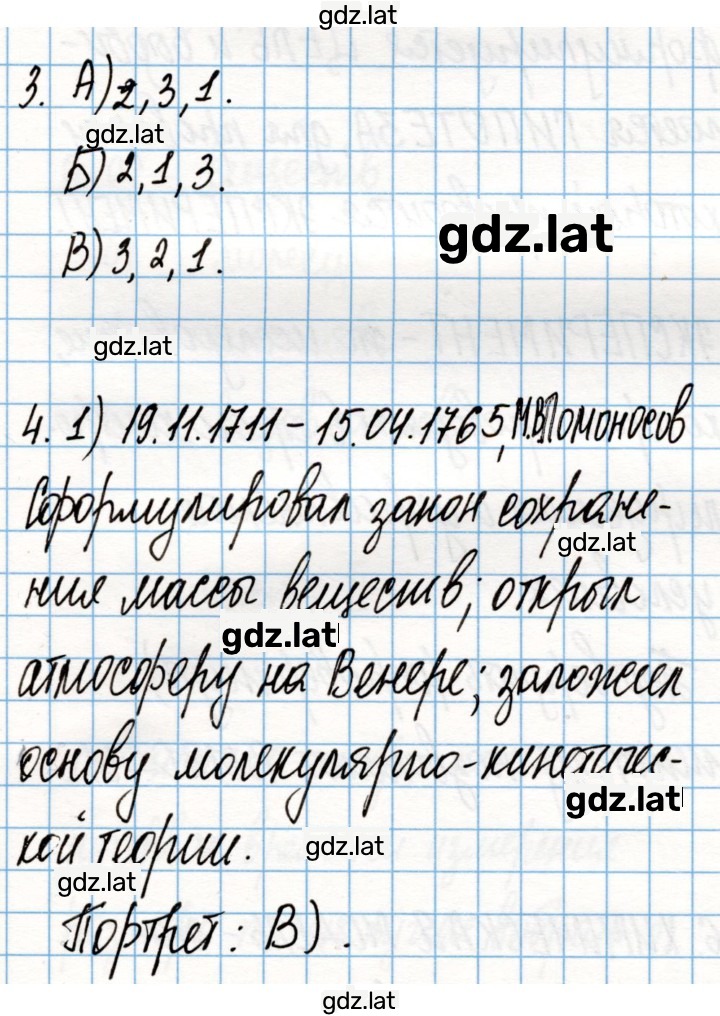 gdz.lat
3. А) 2, 3, 1.
gdz.lat
Б) 2, 1, 3.
gdz.lat
В) 3, 2, 1.
gdz.lat
4. 1) 19.11.1711 – 15.04.1765, М.В.Ломоносов
Сформулировал закон сохране-
gdz.lat
ния массы веществ; открыл
gdz.lat
атмосферу на Венере; заложил
основу молекулярно-кинетичес-
gdz.lat
кой теории.
gdz.lat
gdz.lat
Портрет: В).
gdz.lat